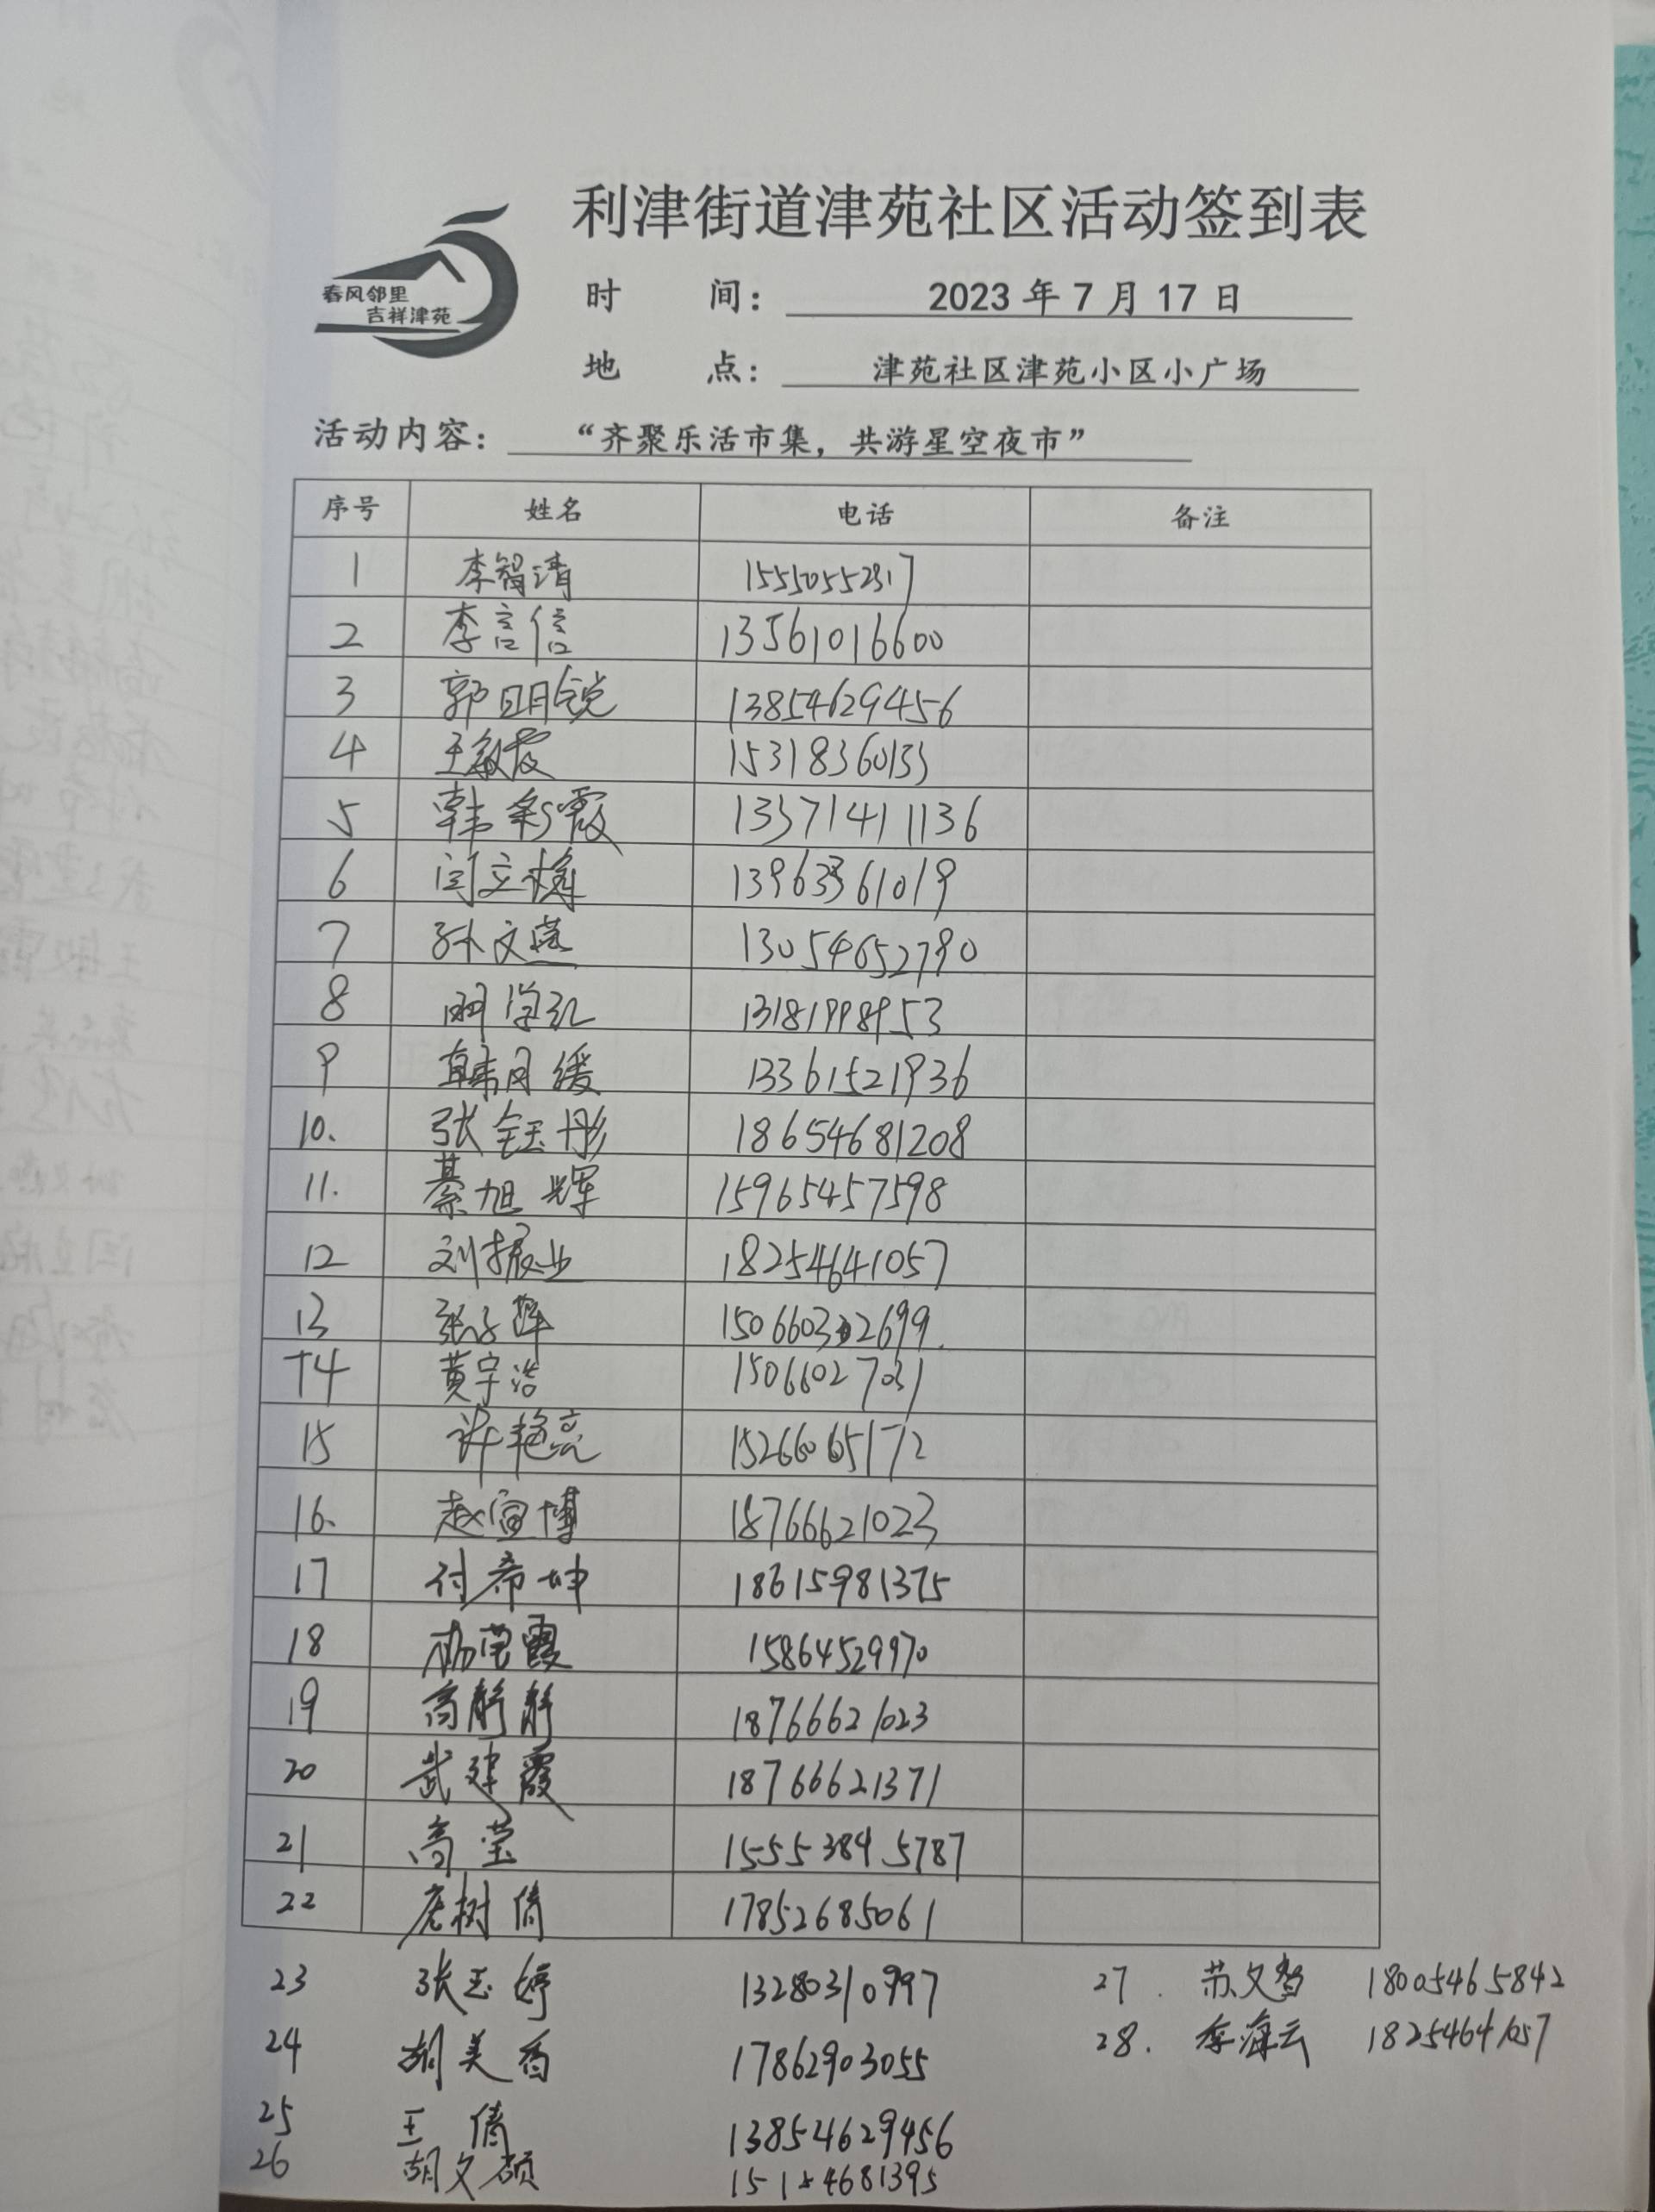 利津街道津苑社区活动签到表
春风邻里
吉祥津苑
时 间: 2023 年 7 月 17 日
地 点: 津苑社区津苑小区小广场
活动内容: “齐聚乐活市集，共游星空夜市”
序号 姓名 电话 备注
1 李智清 15550552317
2 李言信 13561016600
3 郭明锐 13854629456
4 王敏霞 15318360133
5 韩彩霞 13371411136
6 闫立 13963361019
7 孙文莲 13054652790
8 13181998953
9 韩风缓 13361521936
10. 张钰彤 18654681208
11. 綦旭辉 15965457598
12 刘振业 18254641057
13 张子 15066032699.
14 黄宇浩 15066027031
15 许艳亮 15266065172
16. 赵宣博 18766621023
17 付希坤 18615981375
18 杨莹霞 15864529970
19 高静静 18766621023
20 武建霞 18766621371
21 高莹 15553845787
22 树倩 17852685061
23 张玉婷 13280310997 27. 苏文 18005465842
24 胡美香 17862903055 28. 李海云 18254641057
25 王倩 13854629456
26 胡文硕 15154681395